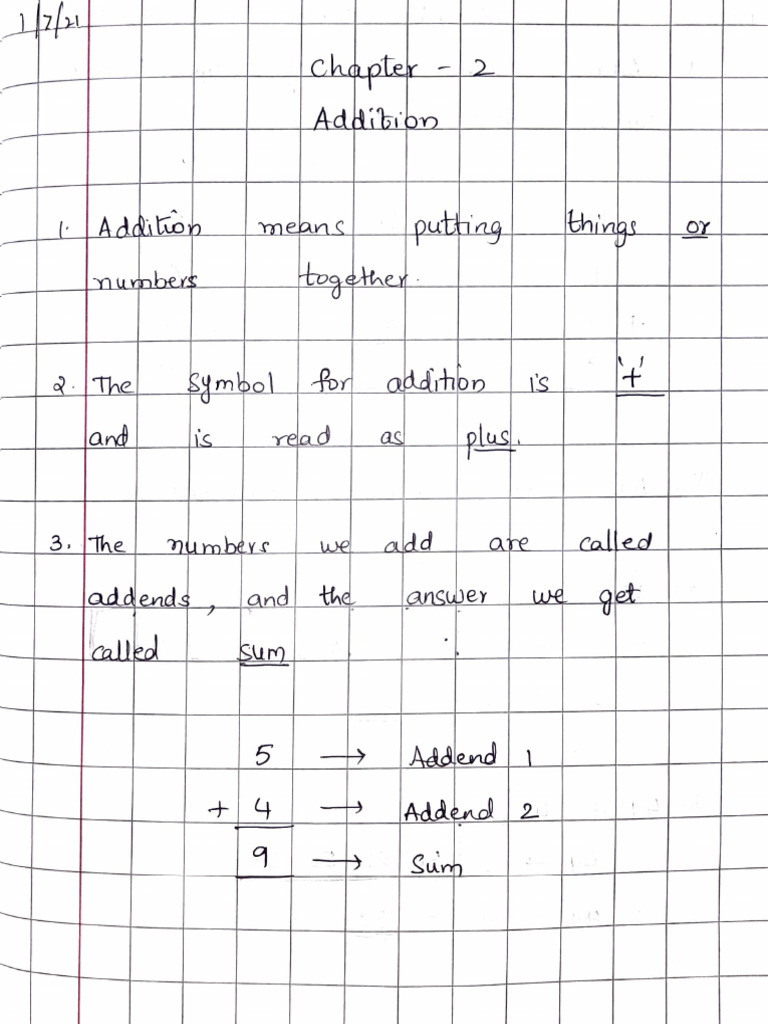 1/7/21
Chapter - 2
Addition
1. Addition means putting things or
numbers together.
2. The symbol for addition is '+'
and is read as plus.
3. The numbers we add are called
addends, and the answer we get
called sum
5 → Addend 1
+ 4 → Addend 2
9 → Sum